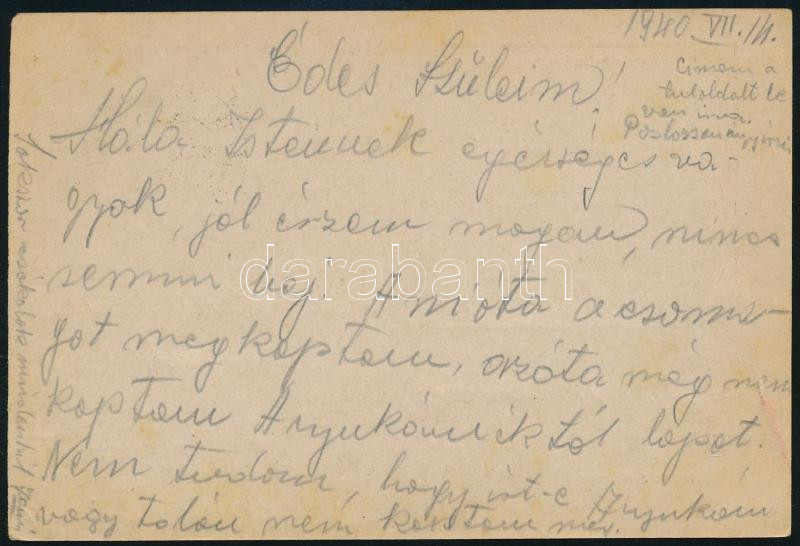 1940. VII. 14.
Édes Szüleim!
Cimem a
tuloldalt le
van irva.
Pontossan úgy irni
Hála Istennek egésséges va-
gyok, jól érzem magam, nincs
semmi baj. Amióta a csoma-
got megkaptam, azóta még nem
kaptam Anyukáméktól lapot.
Nem tudom, hogy írt-e Anyukám
vagy talán nem kaptam meg.
Sokszor csókolok mindenkit
darabanth